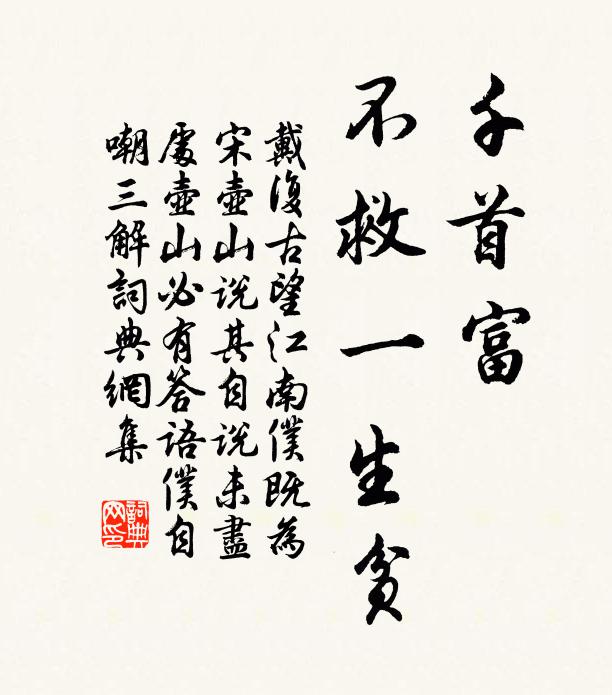 千首富
不救一生貧
戴復古望江南僕既為
宋壺山説其自説未盡
處壺山必有答語僕自
嘲三解詞典網集
詞典
网印